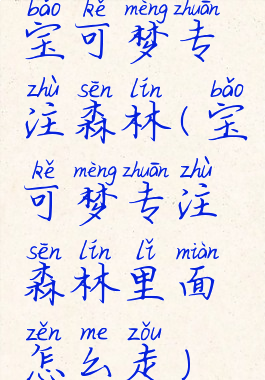 bǎo kě mèng zhuān
宝可梦专
zhù sēn lín bǎo
注森林(宝
kě mèng zhuān zhù
可梦专注
sēn lín lǐ miàn
森林里面
zěn me zǒu
怎么走)